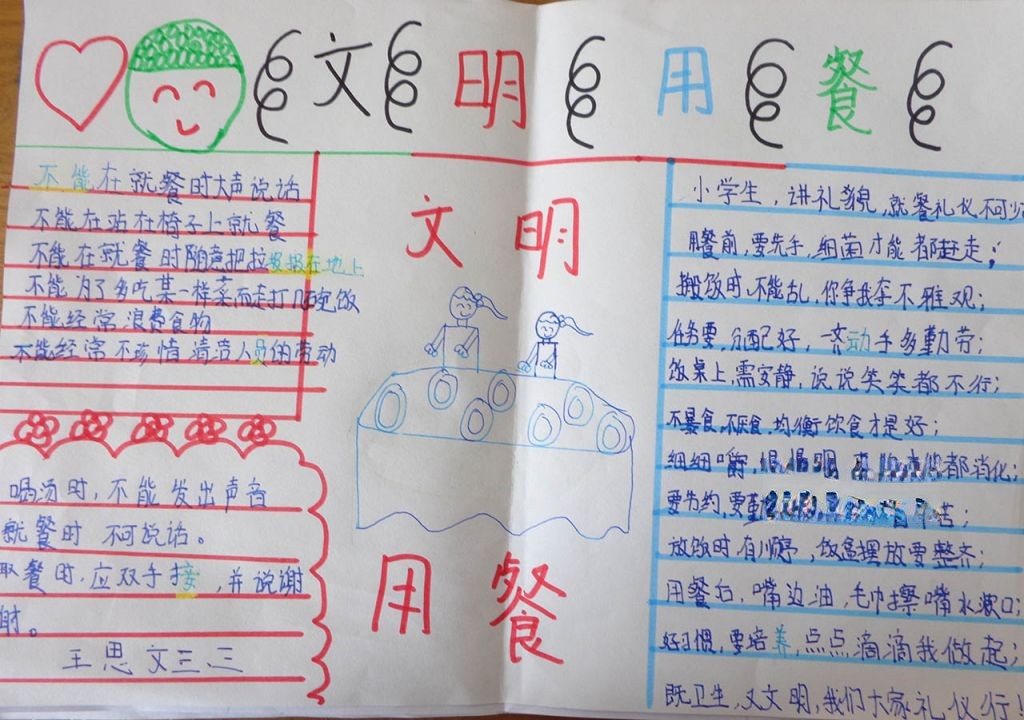 文明用餐
不能在就餐时大声说话
不能在站在椅子上就餐
不能在就餐时随意把垃圾报在地上
不能为了多吃某一样菜而走打几碗饭
不能经常浪费食物
不能经常不珍惜清洁人员的劳动
喝汤时,不能发出声音
就餐时不可说话。
取餐时,应双手接,并说谢
谢。
王思文三.三
文明
用餐
小学生,讲礼貌,就餐礼仪不可少
用餐前,要洗手,细菌才能都赶走;
搬饭时,不能乱,你争我夺不雅观;
任务要,分配好,一齐动手多勤劳;
饭桌上,需安静,说说笑笑都不行;
不暴食,不厌食,均衡饮食才是好;
细细嚼,慢慢咽,都消化;
要节约,要苦;
放饭时,有顺序,饭盒摆放要整齐;
用餐后,嘴边油,毛巾擦嘴水漱口;
好习惯,要培养,点点滴滴我做起;
既卫生,又文明,我们大家礼仪行!